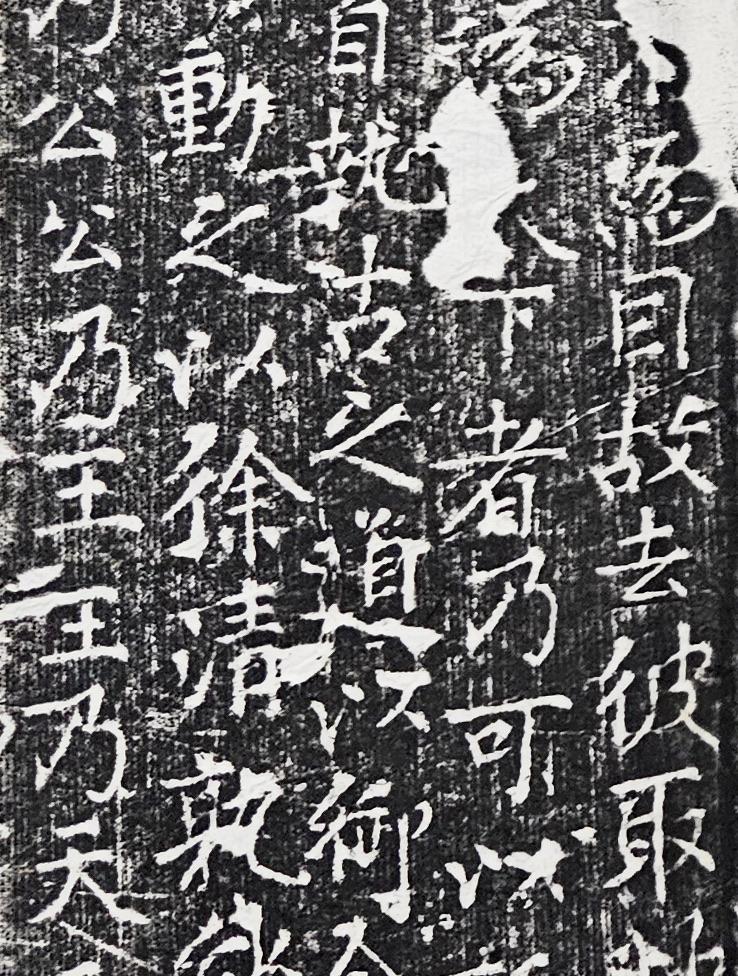 為目故去彼取此
為天下者乃可以
執古之道以御今
動之以徐清孰能
乃公公乃王王乃天